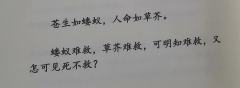 苍生如蝼蚁，人命如草芥。
蝼蚁难救，草芥难救，可明知难救，又
怎可见死不救？